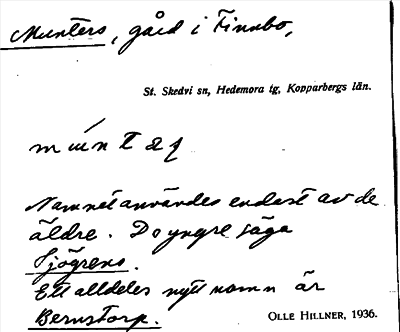 Munters, gård i Finnbo,
St. Skedvi sn, Hedemora tg, Kopparbergs län.
Namnet användes endast av de
äldre. Do yngre säga
Sjögrens.
Ett alldeles nytt namn är
Bernstorp.
OLLE HILLNER, 1936.